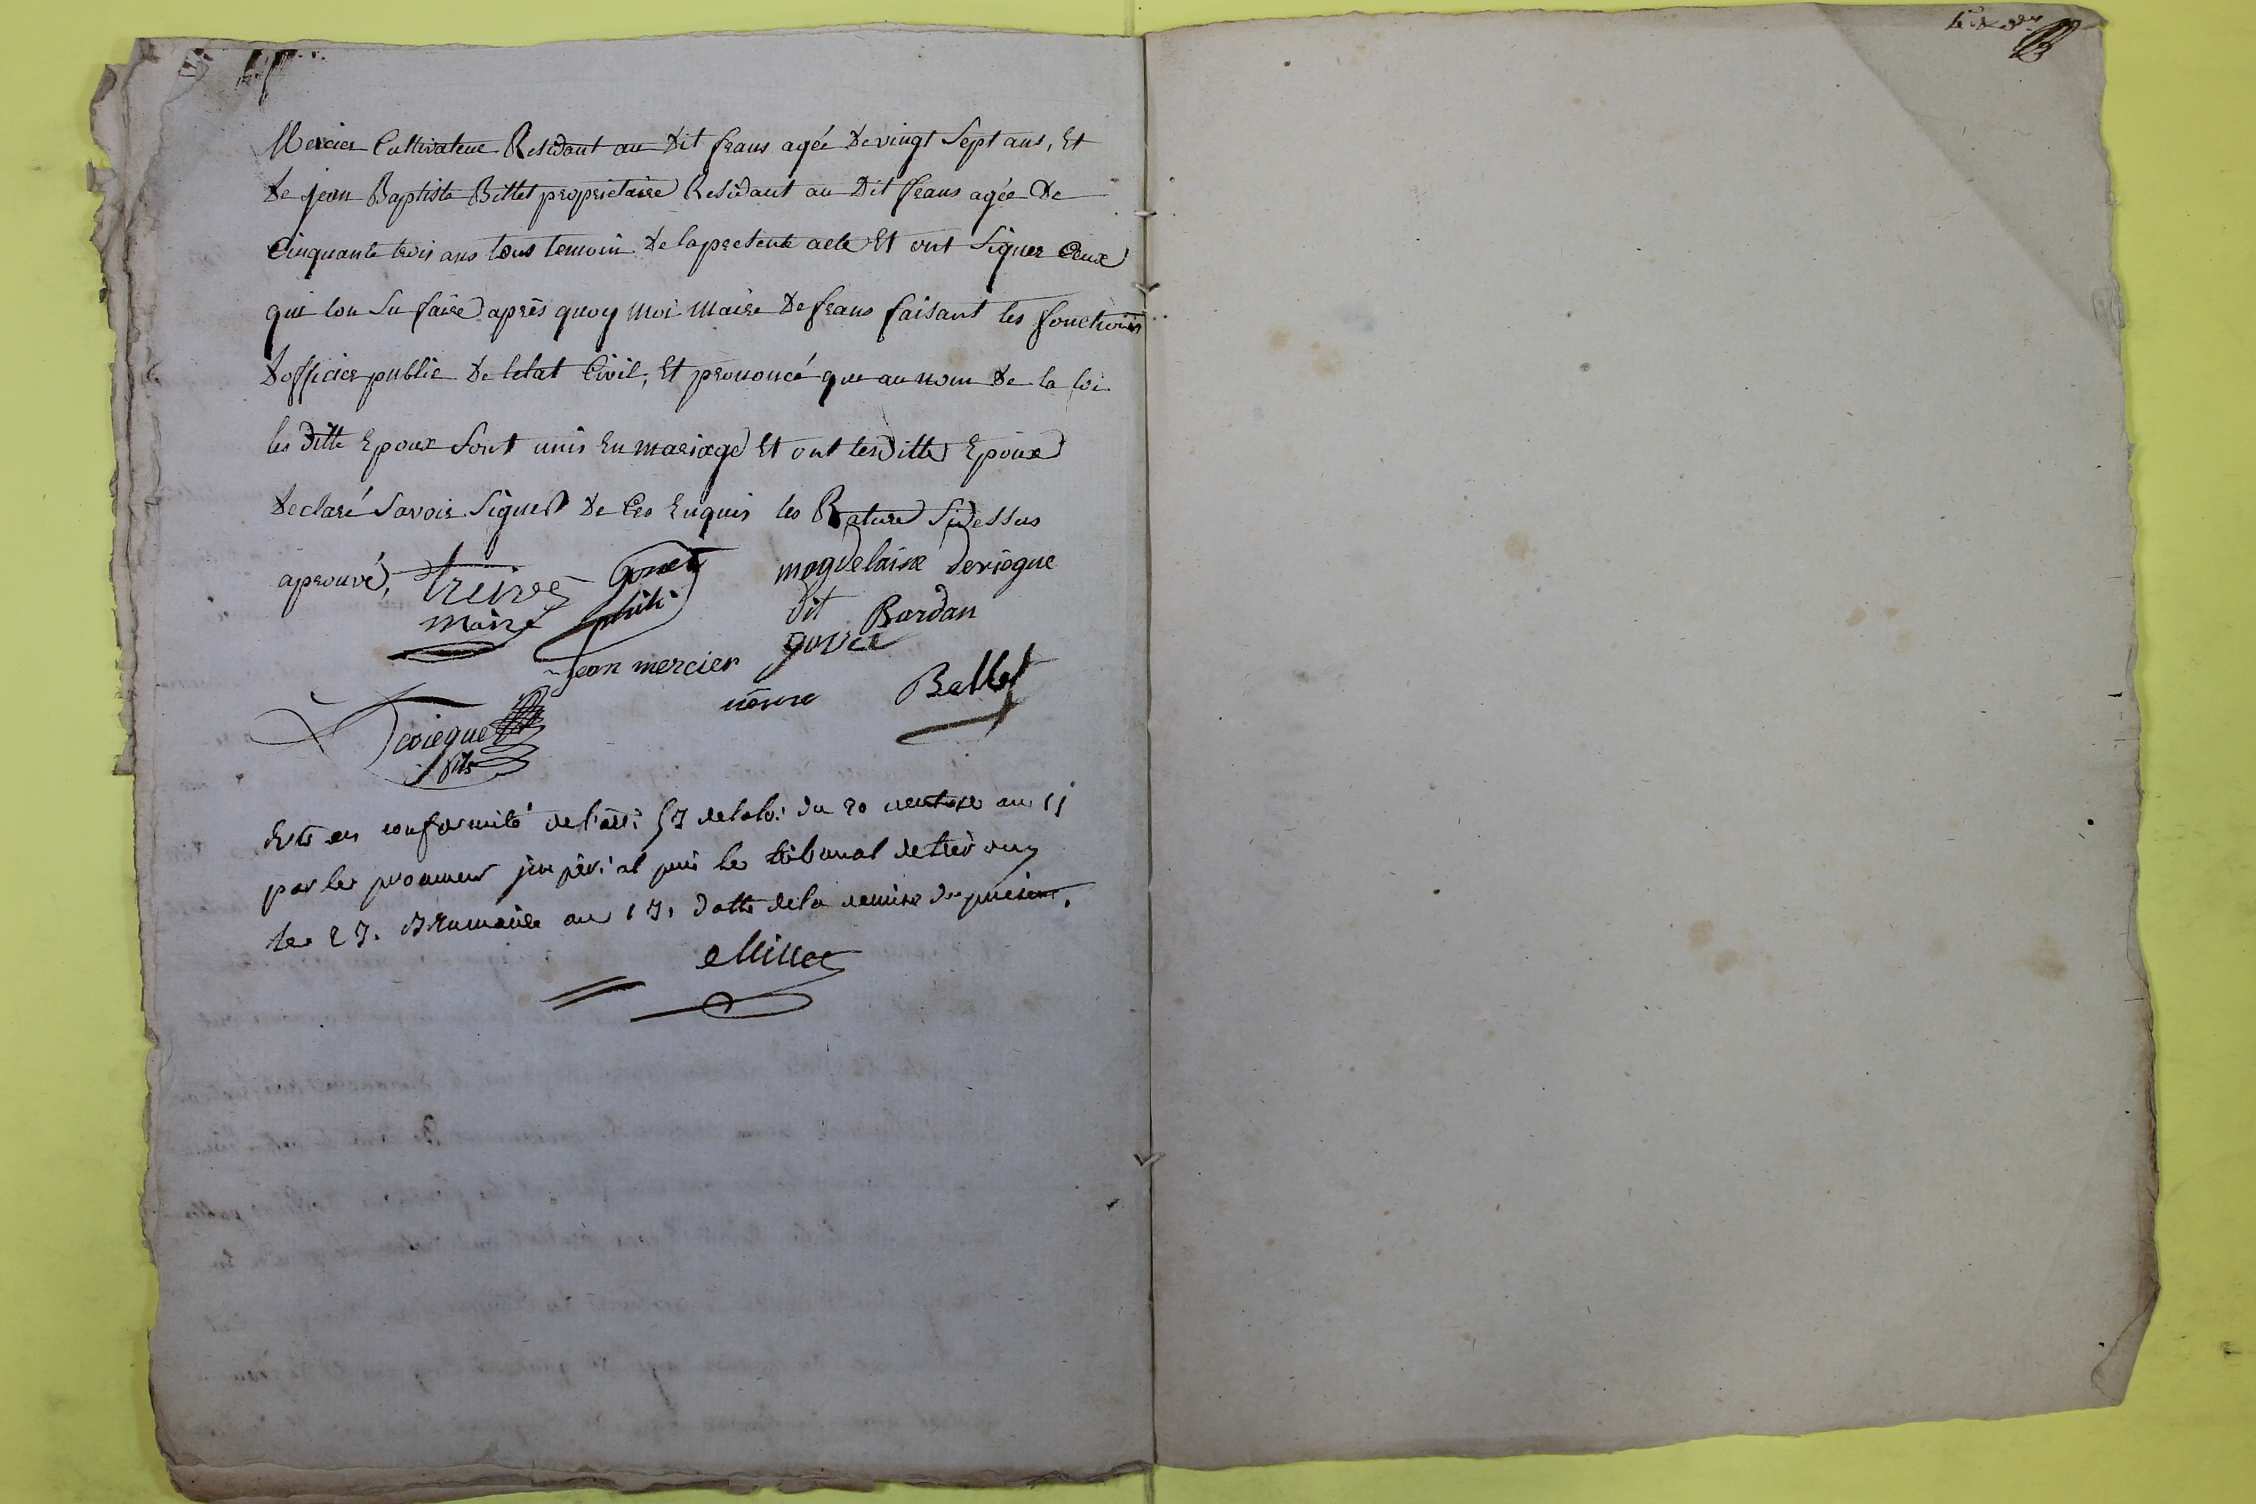 Mercier Cultivateur Residant au Dit frans agée De vingt Sept ans, Et
De jean Baptiste Billet proprietaire Residant au Dit frans agée De
Cinquante trois ans tous temoin De la presente acte Et ont Signer Ceux
qui lon Su faire après quoy moi maire De frans faisant les fonctions
Dofficier public De letat Civil, Et prononcé que au nom De la loi
les Ditte Epoux Sont unis En mariage Et ont les Ditte Epoux
Declaré Savoir Signer De Ceo Enquis les Rature Sidessus
aprouvé,
maire
magdelaine deriogue
dit Bardan
jean mercier
Ballet
fils
en conformité de l'art. 57 de la loi du 20 ventose an 11
par le procureur impérial près le tribunal de trévoux
le 27. Brumaire an 13, datte de la remise du présent.
Millet